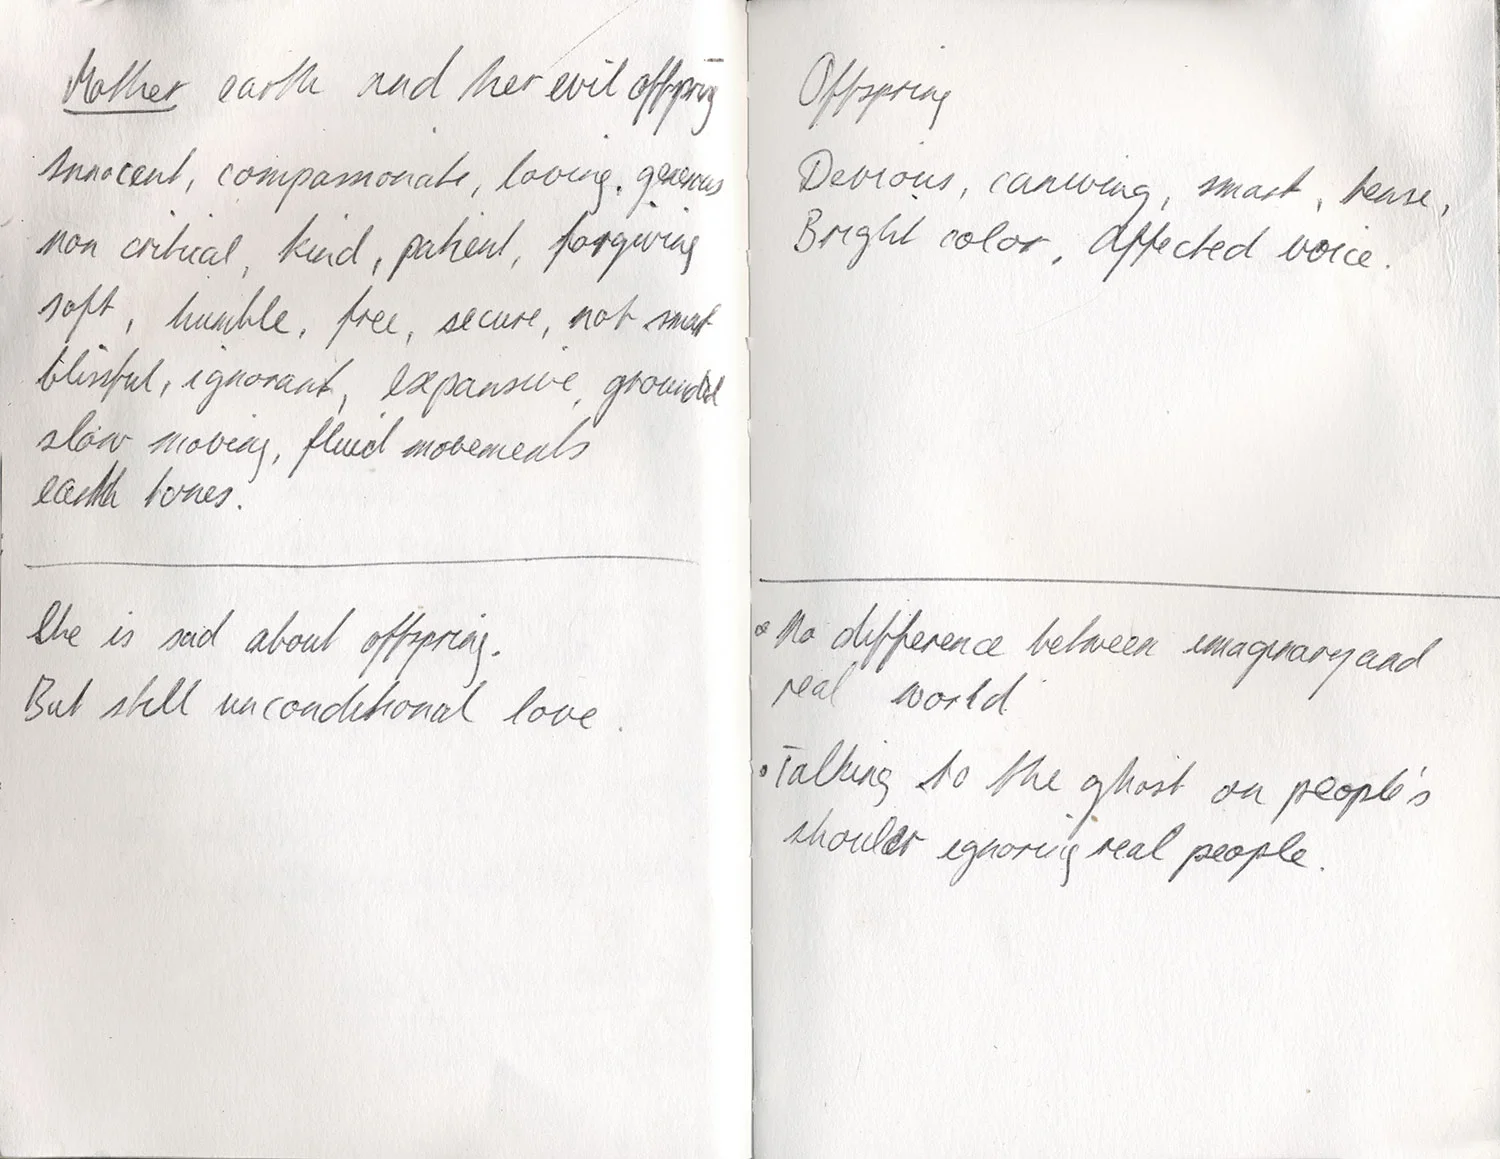 Mother earth and her evil offspring
Innocent, compassionate, loving, generous
non critical, kind, patient, forgiving
soft, humble, free, secure, not smart
blissful, ignorant, expansive, grounded
slow moving, fluid movements
earth tones.
She is sad about offspring.
But still unconditional love.
Offspring
Devious, caniving, smart, tense,
Bright color, Affected voice.
• No difference between imaginary and
real world
• Talking to the ghost on people's
shoulder ignoring real people.